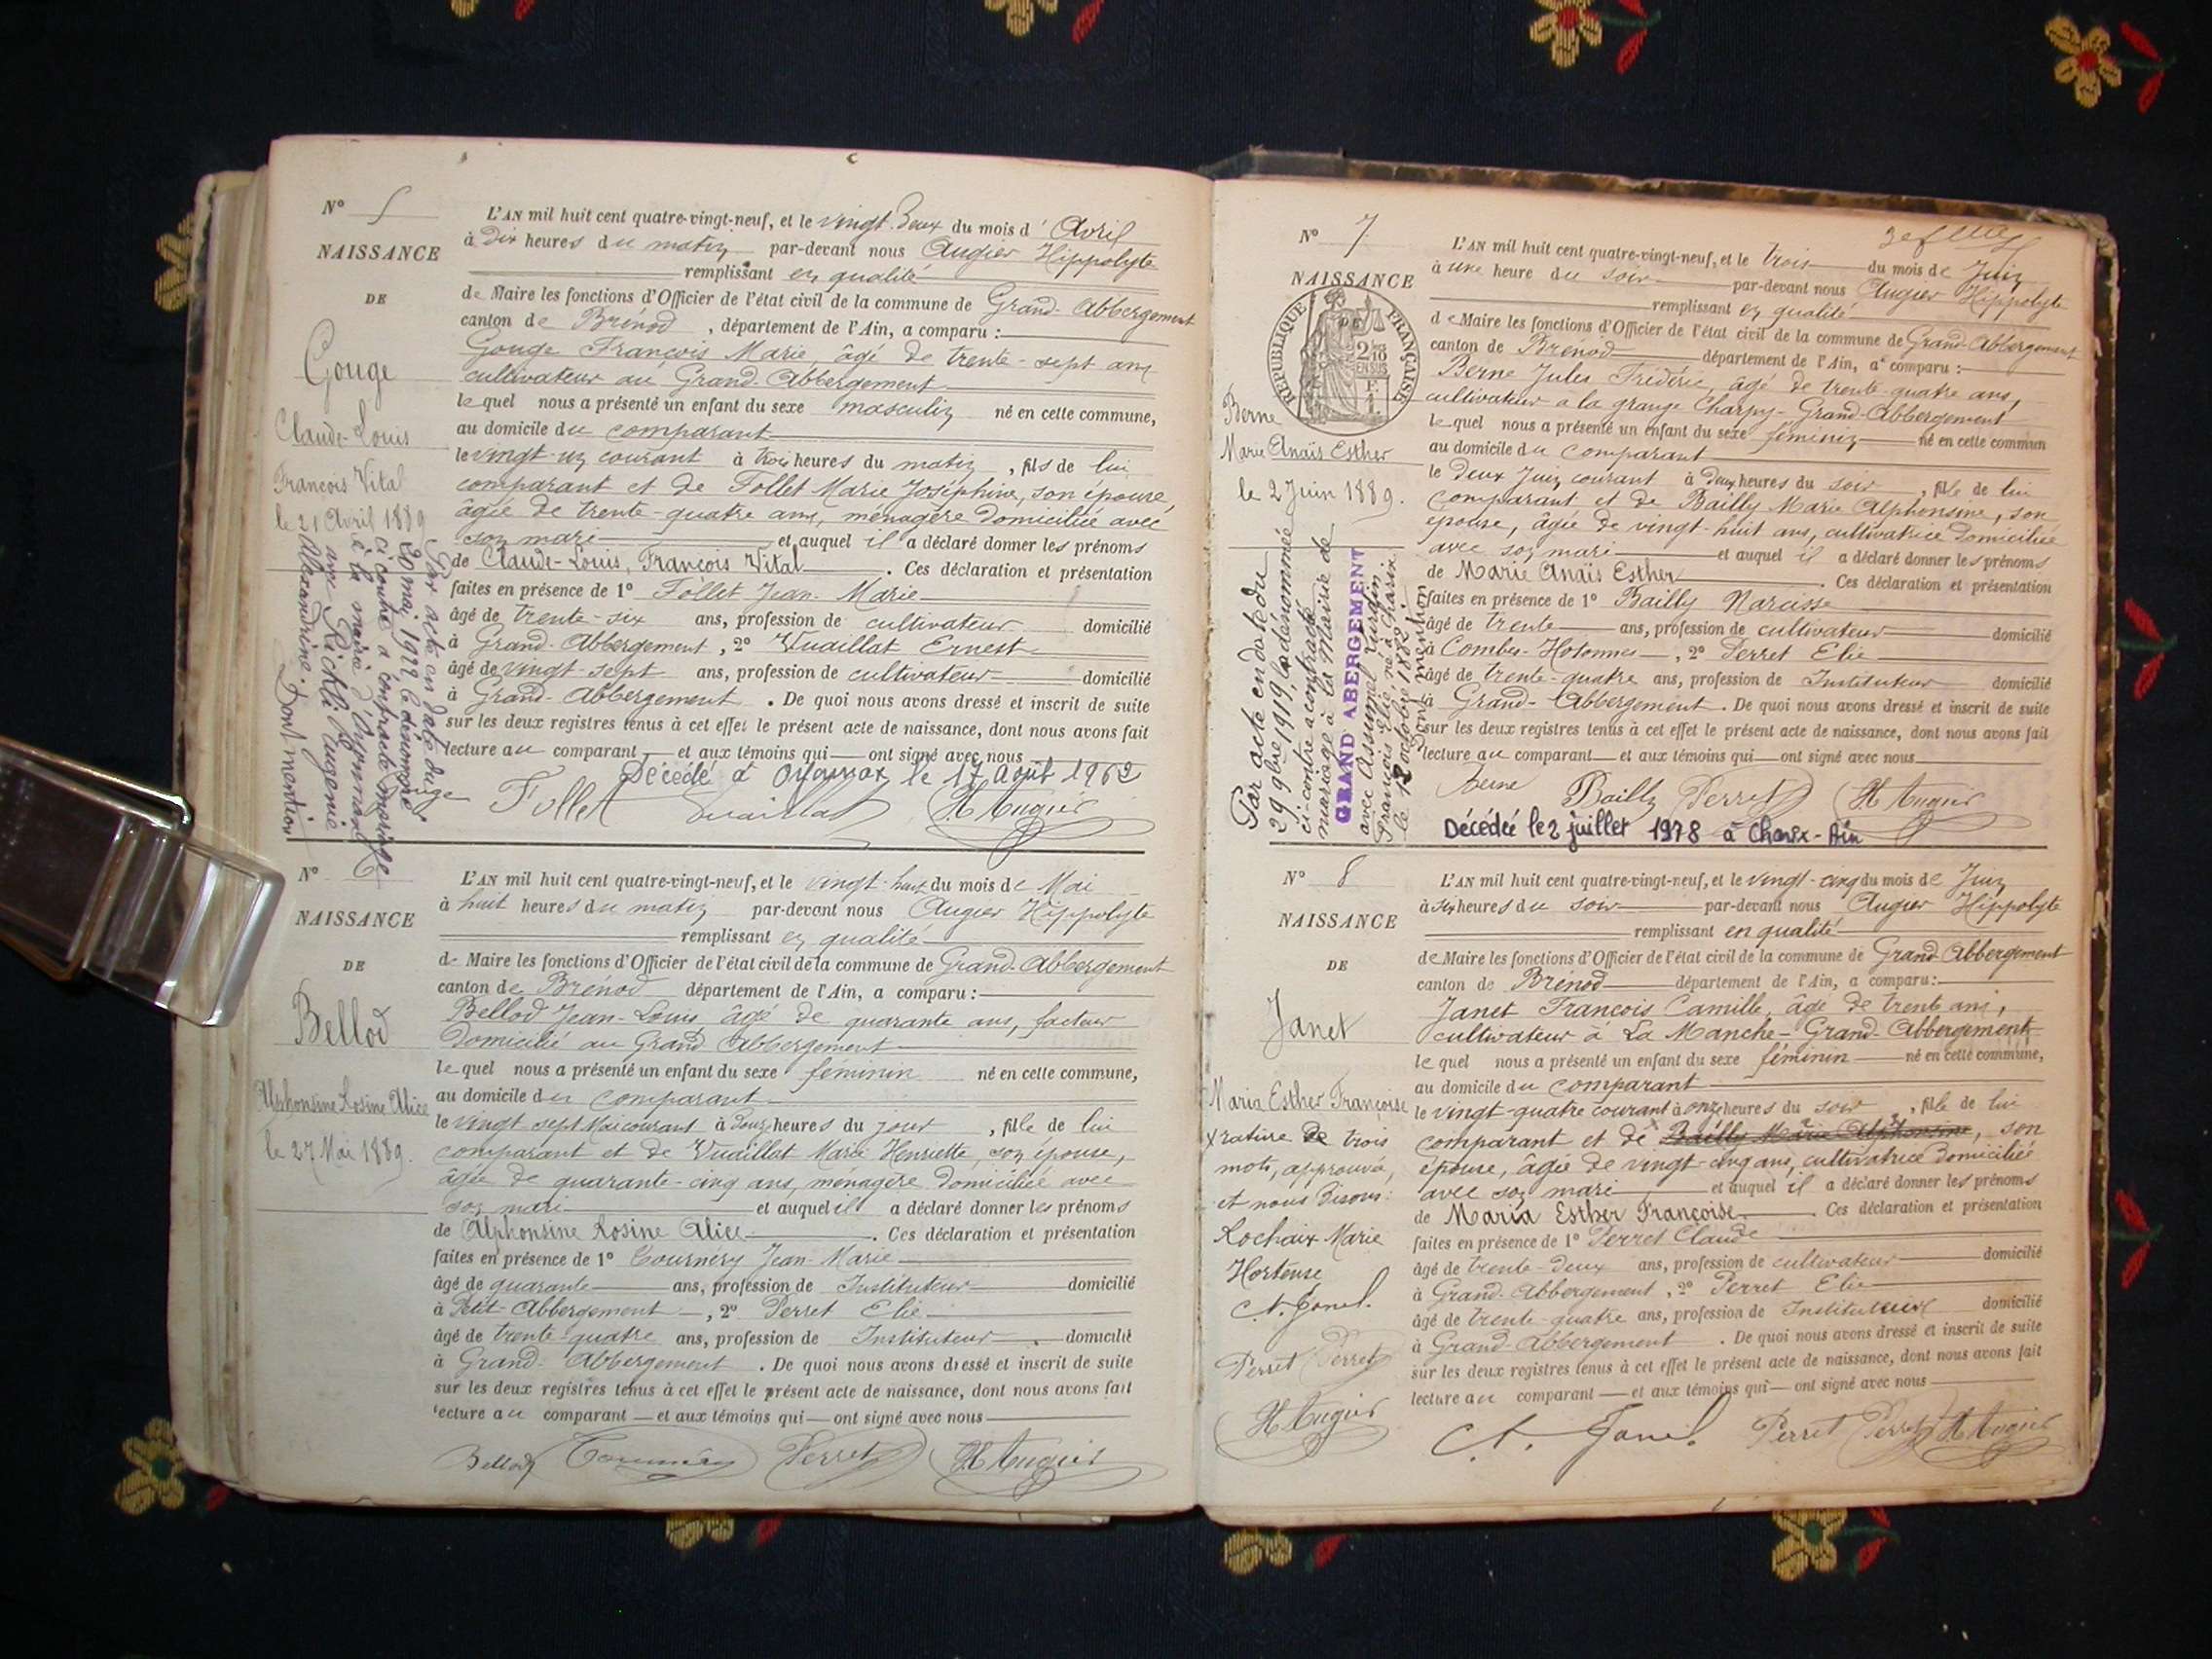 N° 5
NAISSANCE
DE
Gouge
Claude-Louis
François Vital
le 21 Avril 1889
Par acte en date du
20 mai 1922, le dénommé
ci contre a contracté mariage
à la mairie d'Oyonnax
avec Richli Eugénie
Alexandrine. Dont mention
L'AN mil huit cent quatre-vingt-neuf, et le vingt-deux du mois d' Avril
à dix heures du matin par-devant nous Augier Hippolyte
remplissant en qualité
de Maire les fonctions d'Officier de l'état civil de la commune de Grand-Abbergement
canton de Brénod, département de l'Ain, a comparu :
Gouge François Marie, âgé de trente-sept ans
cultivateur au Grand-Abbergement
lequel nous a présenté un enfant du sexe masculin né en cette commune,
au domicile du comparant
le vingt-un courant à trois heures du matin, fils de lui
comparant et de Follet Marie Joséphine, son épouse,
âgée de trente-quatre ans, ménagère domiciliée avec
son mari et auquel il a déclaré donner les prénoms
de Claude-Louis, François Vital. Ces déclaration et présentation
faites en présence de 1° Follet Jean-Marie
âgé de trente-six ans, profession de cultivateur domicilié
à Grand-Abbergement, 2° Vuaillat Ernest
âgé de vingt-sept ans, profession de cultivateur domicilié
à Grand-Abbergement. De quoi nous avons dressé et inscrit de suite
sur les deux registres tenus à cet effet le présent acte de naissance, dont nous avons fait
lecture au comparant et aux témoins qui ont signé avec nous
Décédé à Oyonnax le 17 Août 1962
Gouge Follet Vuaillat H Augier
N° 6
NAISSANCE
DE
Bellod
Alphonsine Rosine Alice
le 27 Mai 1889.
L'AN mil huit cent quatre-vingt-neuf, et le vingt-huit du mois de Mai
à huit heures du matin par-devant nous Augier Hippolyte
remplissant en qualité
de Maire les fonctions d'Officier de l'état civil de la commune de Grand-Abbergement
canton de Brénod département de l'Ain, a comparu :
Bellod Jean-Louis âgé de quarante ans, facteur
domicilié au Grand Abbergement
lequel nous a présenté un enfant du sexe féminin né en cette commune,
au domicile du comparant
le vingt sept Mai courant à douze heures du jour, fille de lui
comparant et de Vuaillat Marie Henriette, son épouse,
âgée de quarante-cinq ans, ménagère domiciliée avec
son mari et auquel il a déclaré donner les prénoms
de Alphonsine Rosine Alice. Ces déclaration et présentation
faites en présence de 1° Tournery Jean-Marie
âgé de quarante ans, profession de Instituteur domicilié
à Petit-Abbergement, 2° Perret Elie
âgé de trente-quatre ans, profession de Instituteur domicilié
à Grand-Abbergement. De quoi nous avons dressé et inscrit de suite
sur les deux registres tenus à cet effet le présent acte de naissance, dont nous avons fait
lecture au comparant et aux témoins qui ont signé avec nous
Bellod Perret H Augier
N° 7
NAISSANCE
DE
RÉPUBLIQUE FRANÇAISE
Berne
Marie Anaïs Esther
le 2 Juin 1889.
Par acte en date du
29 9bre 1919, la dénommée
ci-contre a contracté
mariage à la Mairie de
GRAND ABERGEMENT
avec Assumel Lurdin
François Elie né à Charix
le 12 octobre 1882
Dont mention
L'AN mil huit cent quatre-vingt-neuf, et le trois du mois de Juin
à une heure du soir par-devant nous Augier Hippolyte
remplissant en qualité
de Maire les fonctions d'Officier de l'état civil de la commune de Grand-Abbergement
canton de Brénod département de l'Ain, a comparu :
Berne Jules Frédéric, âgé de trente-quatre ans,
cultivateur à la grange Charpy-Grand-Abbergement
lequel nous a présenté un enfant du sexe féminin né en cette commun
au domicile du comparant
le deux Juin courant à deux heures du soir, fille de lui
comparant et de Bailly Marie Alphonsine, son
épouse, âgée de vingt-huit ans, cultivatrice domiciliée
avec son mari et auquel il a déclaré donner les prénoms
de Marie Anaïs Esther. Ces déclaration et présentation
faites en présence de 1° Bailly Narcisse
âgé de trente ans, profession de cultivateur domicilié
à Combes-Hotonnes, 2° Perret Elie
âgé de trente-quatre ans, profession de Instituteur domicilié
à Grand-Abbergement. De quoi nous avons dressé et inscrit de suite
sur les deux registres tenus à cet effet le présent acte de naissance, dont nous avons fait
lecture au comparant et aux témoins qui ont signé avec nous
Berne Bailly Perret H Augier
Décédée le 2 juillet 1978 à Charix-Ain
N° 8
NAISSANCE
DE
Janet
Maria Esther Françoise
x rature de trois
mots, approuvée,
et nous disons:
Rochaix Marie
Hortense
Perret Perret
H Augier
L'AN mil huit cent quatre-vingt-neuf, et le vingt-cinq du mois de Juin
à six heures du soir par-devant nous Augier Hippolyte
remplissant en qualité
de Maire les fonctions d'Officier de l'état civil de la commune de Grand-Abbergement
canton de Brénod département de l'Ain, a comparu :
Janet François Camille, âgé de trente ans,
cultivateur à La Manche-Grand-Abbergement
lequel nous a présenté un enfant du sexe féminin né en cette commune,
au domicile du comparant
le vingt-quatre courant à onze heures du soir, fille de lui
comparant et de x Bailly Marie Alphonsine, son
épouse, âgée de vingt-cinq ans, cultivatrice domiciliée
avec son mari et auquel il a déclaré donner les prénoms
de Maria Esther Françoise. Ces déclaration et présentation
faites en présence de 1° Perret Claude
âgé de trente-deux ans, profession de cultivateur domicilié
à Grand-Abbergement, 2° Perret Elie
âgé de trente-quatre ans, profession de Instituteur domicilié
à Grand-Abbergement. De quoi nous avons dressé et inscrit de suite
sur les deux registres tenus à cet effet le présent acte de naissance, dont nous avons fait
lecture au comparant et aux témoins qui ont signé avec nous
Perret Perret H Augier